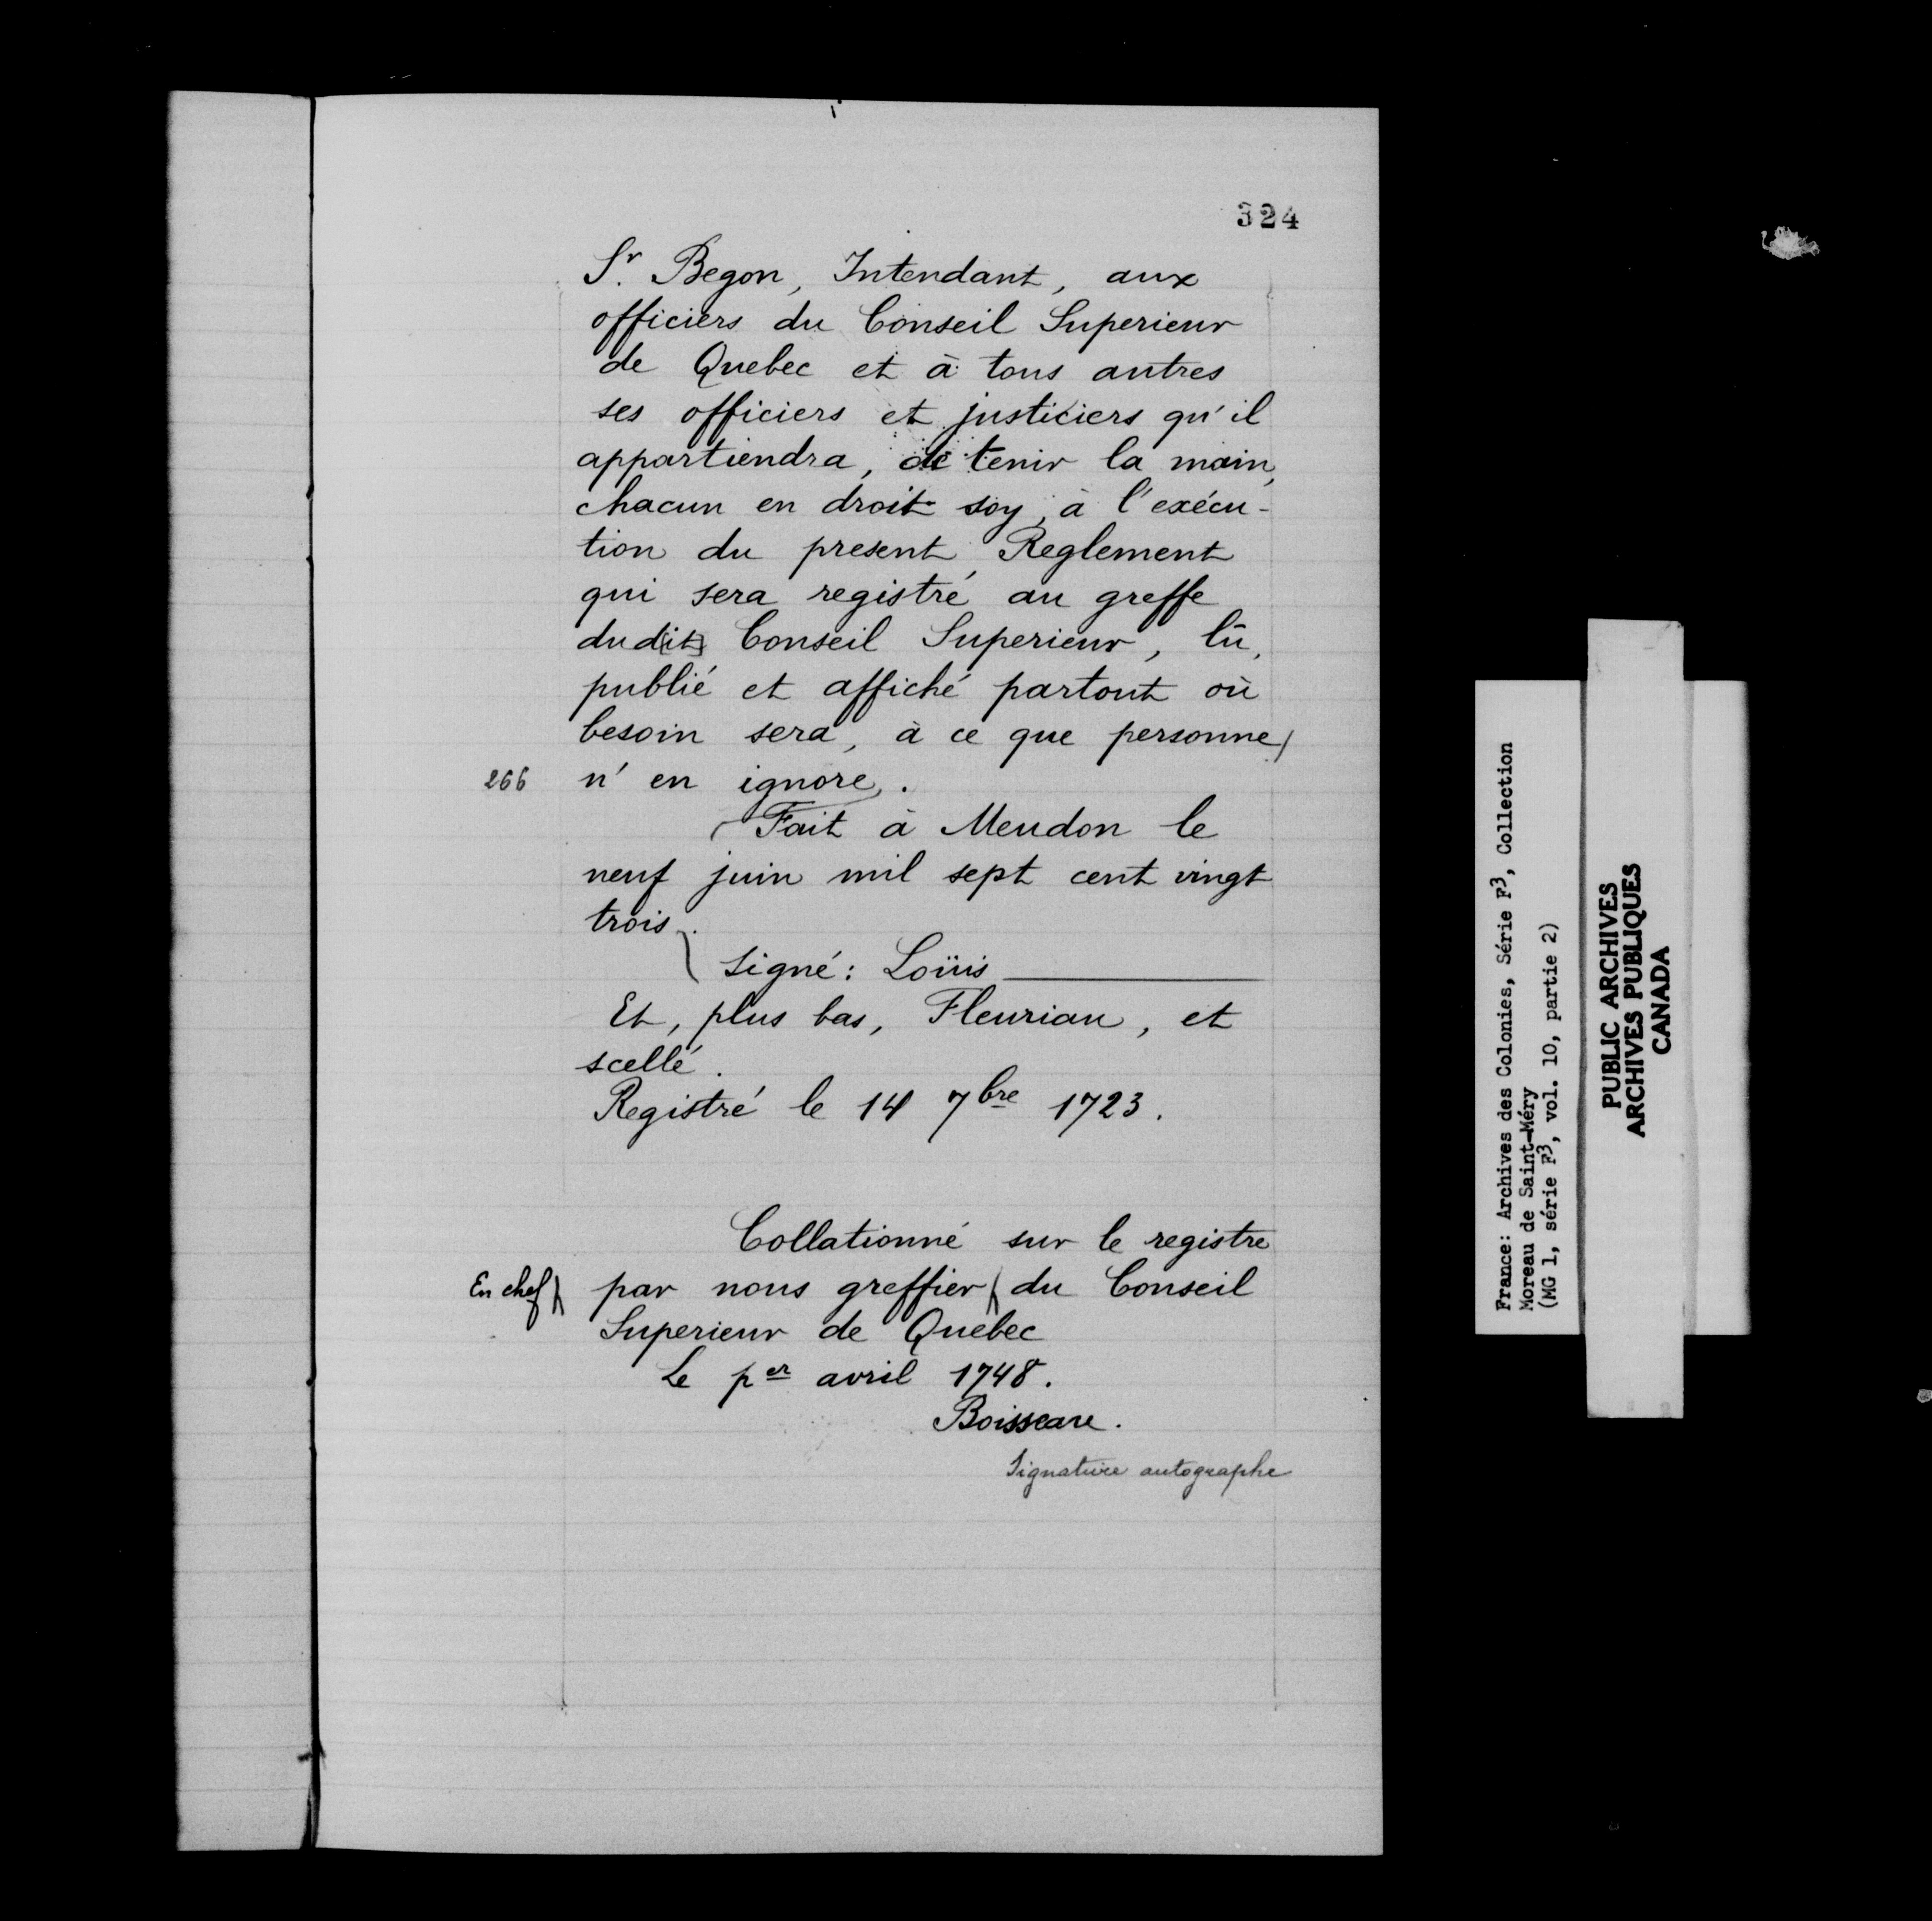 324
Sr. Begon, Intendant, aux
officiers du Conseil Superieur
de Quebec et à tous autres
ses officiers et justiciers qu'il
appartiendra, de tenir la main,
chacun en droit soy, à l'exécu-
tion du present Reglement
qui sera registré au greffe
dud[it] Conseil Superieur, lû,
publié et affiché partout où
besoin sera, à ce que personne
266 n'en ignore.
Fait à Meudon le
neuf juin mil sept cent vingt
trois.
Signé: Loüis
Et, plus bas, Fleuriau, et
scellé.
Registré le 14 7bre 1723.
Collationné sur le registre
En chef par nous greffier du Conseil
Superieur de Quebec
Le per avril 1748.
Boisseau.
Signature autographe
France: Archives des Colonies, Série F3, Collection
Moreau de Saint-Méry
(MG 1, série F3, vol. 10, partie 2)
PUBLIC ARCHIVES
ARCHIVES PUBLIQUES
CANADA